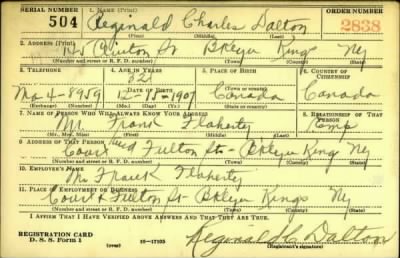 SERIAL NUMBER 1. NAME (Print) ORDER NUMBER
504 Reginald Charles Dalton 2838
(First) (Middle) (Last)
2. ADDRESS (Print)
Clinton St Bklyn Kings Ny
(Number and street or R. F. D. number) (Town) (County) (State)
3. TELEPHONE 4. AGE IN YEARS 5. PLACE OF BIRTH 6. COUNTRY OF CITIZENSHIP
32 Canada Canada
Ma 4-8959 DATE OF BIRTH 1907
(Exchange) (Number) (Mo.) (Day) (Yr.) (Town or county) (State or country)
7. NAME OF PERSON WHO WILL ALWAYS KNOW YOUR ADDRESS 8. RELATIONSHIP OF THAT PERSON
Mr Frank Flaherty Emp
(Mr., Mrs., Miss) (First) (Middle) (Last)
9. ADDRESS OF THAT PERSON
Court and Fulton Sts - Bklyn Kings Ny
(Number and street or R. F. D. number) (Town) (County) (State)
10. EMPLOYER'S NAME
Mr Frank Flaherty
11. PLACE OF EMPLOYMENT OR BUSINESS
Court & Fulton St - Bklyn Kings Ny
(Number and street or R. F. D. number) (Town) (County) (State)
I AFFIRM THAT I HAVE VERIFIED ABOVE ANSWERS AND THAT THEY ARE TRUE.
REGISTRATION CARD
D. S. S. Form 1 (over) 16-17105 Reginald C Dalton